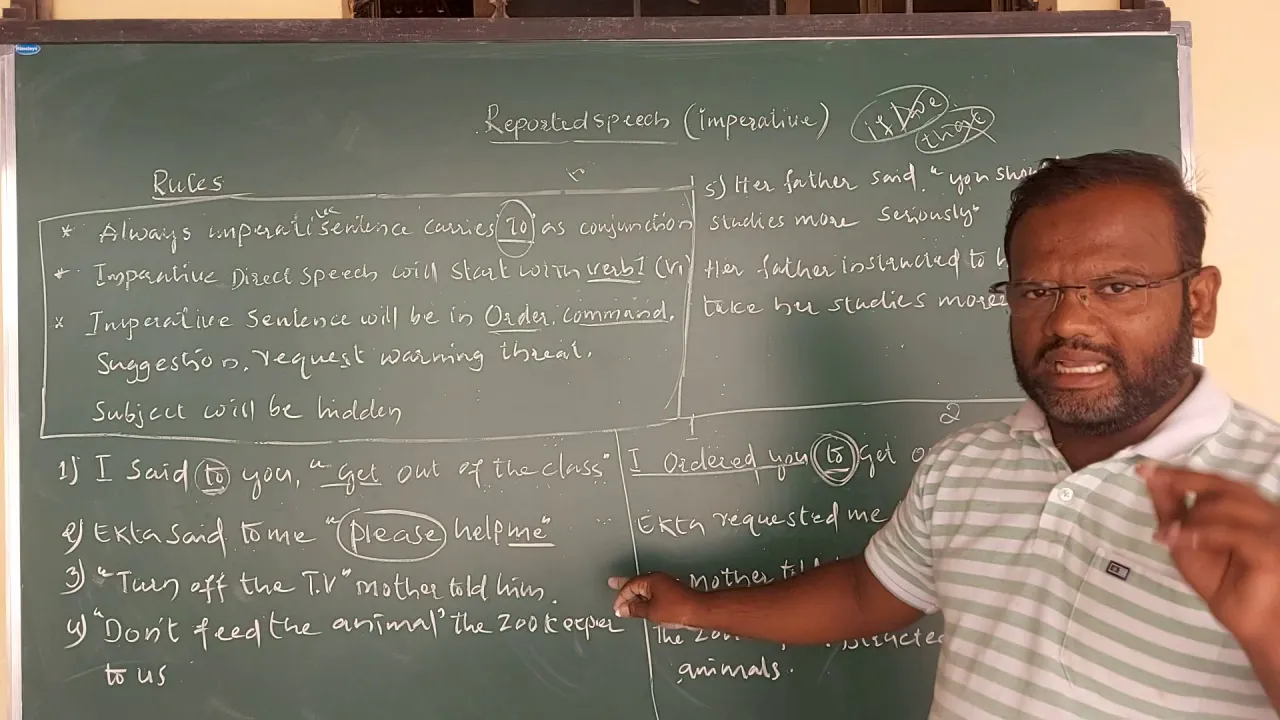 Reported speech (imperative)
if we
that
Rules
* Always imperative sentence carries "To" as conjunction
* Imperative Direct speech will start with verb1 (V1)
* Imperative sentence will be in Order, command,
Suggestion, request warning threat.
Subject will be hidden
5) Her father said, "you should
studies more seriously"
Her father instructed to
take her studies more
1) I said to you, "get out of the class"
2) Ekta said to me "please help me"
3) "Turn off the T.V" mother told him.
4) "Don't feed the animal" the zoo keeper
to us
1
2
I Ordered you to get
Ekta requested me
mother told
The zoo
animals.